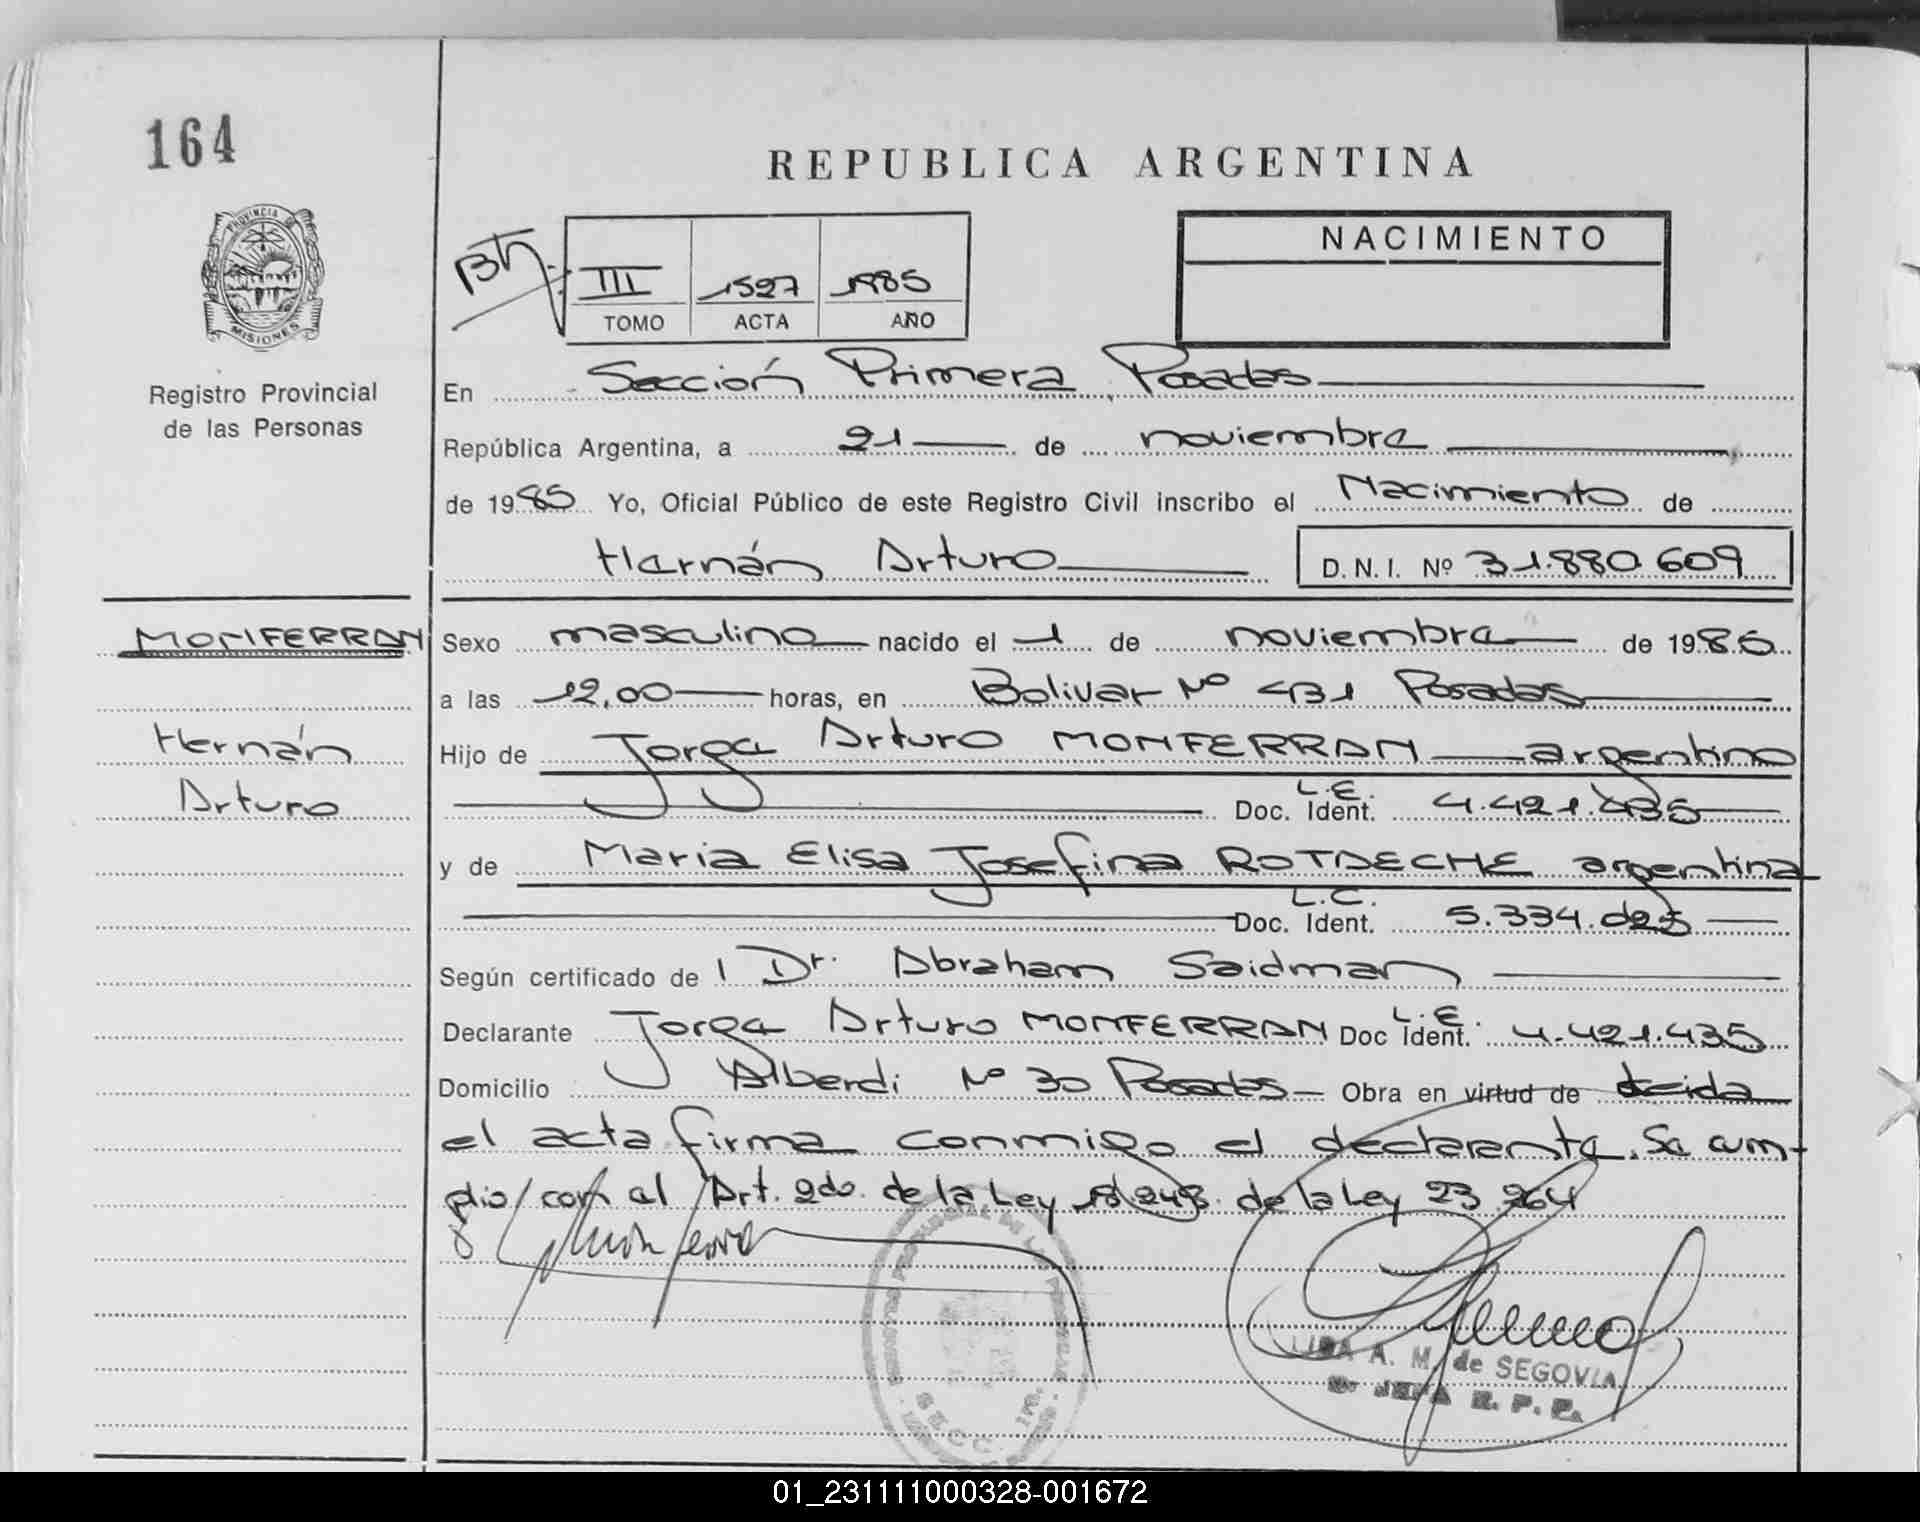 164
REPUBLICA ARGENTINA
PROVINCIA DE
MISIONES
Registro Provincial
de las Personas
III 1527 1985
TOMO ACTA AÑO
NACIMIENTO
En Sección Primera Posadas
República Argentina, a 21 de noviembre
de 1985 Yo, Oficial Público de este Registro Civil inscribo el Nacimiento de
Hernán Arturo D.N.I. Nº 31.880.609
MONFERRAN
Hernán
Arturo
Sexo masculino nacido el 1 de noviembre de 1985
a las 12,00 horas, en Bolivar Nº 431 Posadas
Hijo de Jorge Arturo MONFERRAN argentino
Doc. Ident. L.E. 4.421.435
y de Maria Elisa Josefina ROTDECHE argentina
Doc. Ident. L.C. 5.334.025
Según certificado de l Dr. Abraham Saidman
Declarante Jorge Arturo MONFERRAN Doc Ident. L.E. 4.421.435
Domicilio Alberdi Nº 30 Posadas Obra en virtud de Leida
el acta firma conmigo el declarante. Se cum-
plio con el Art. 2do. de la Ley 18.248. de la Ley 23.264
SECC. 1ra.
A. M. de SEGOVIA
JEFA R. P. P.
01_231111000328-001672